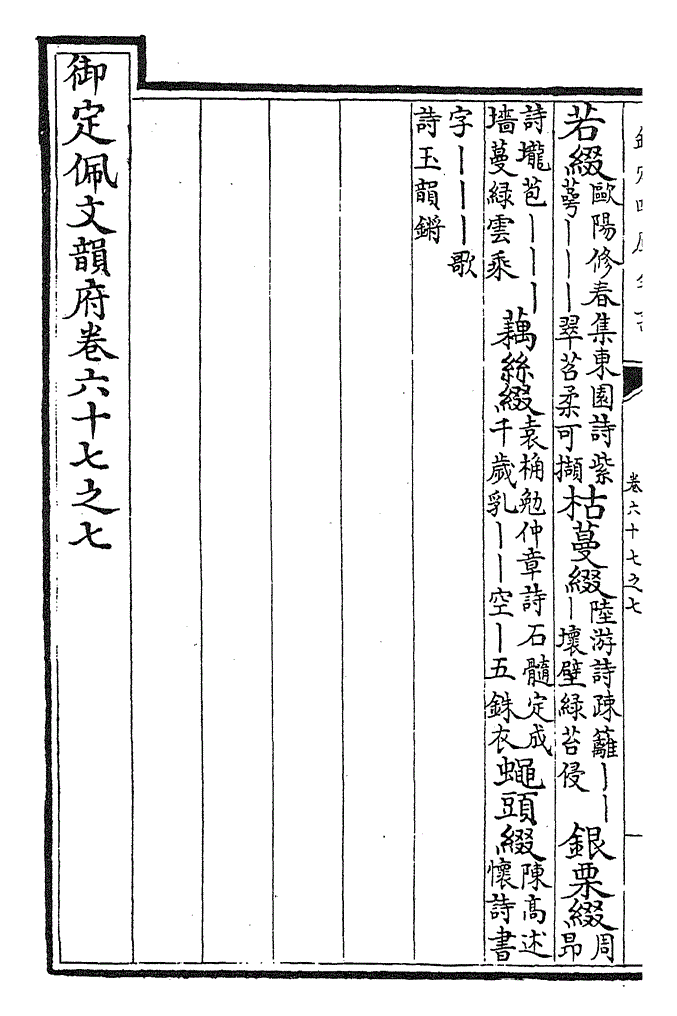 卷六十七之七
若綴歐陽修春集東園詩紫萼丨丨丨翠苕柔可擷枯蔓綴陸游詩疎籬丨丨丨壞壁綠苔侵銀栗綴周昂
詩壠苞丨丨丨墻蔓綠雲乘藕絲綴袁桷勉仲章詩石髓定成千歲乳丨丨空丨五銖衣蠅頭綴陳高述懷詩書
字丨丨丨歌詩玉韻鏘
御定佩文韻府卷六十七之七